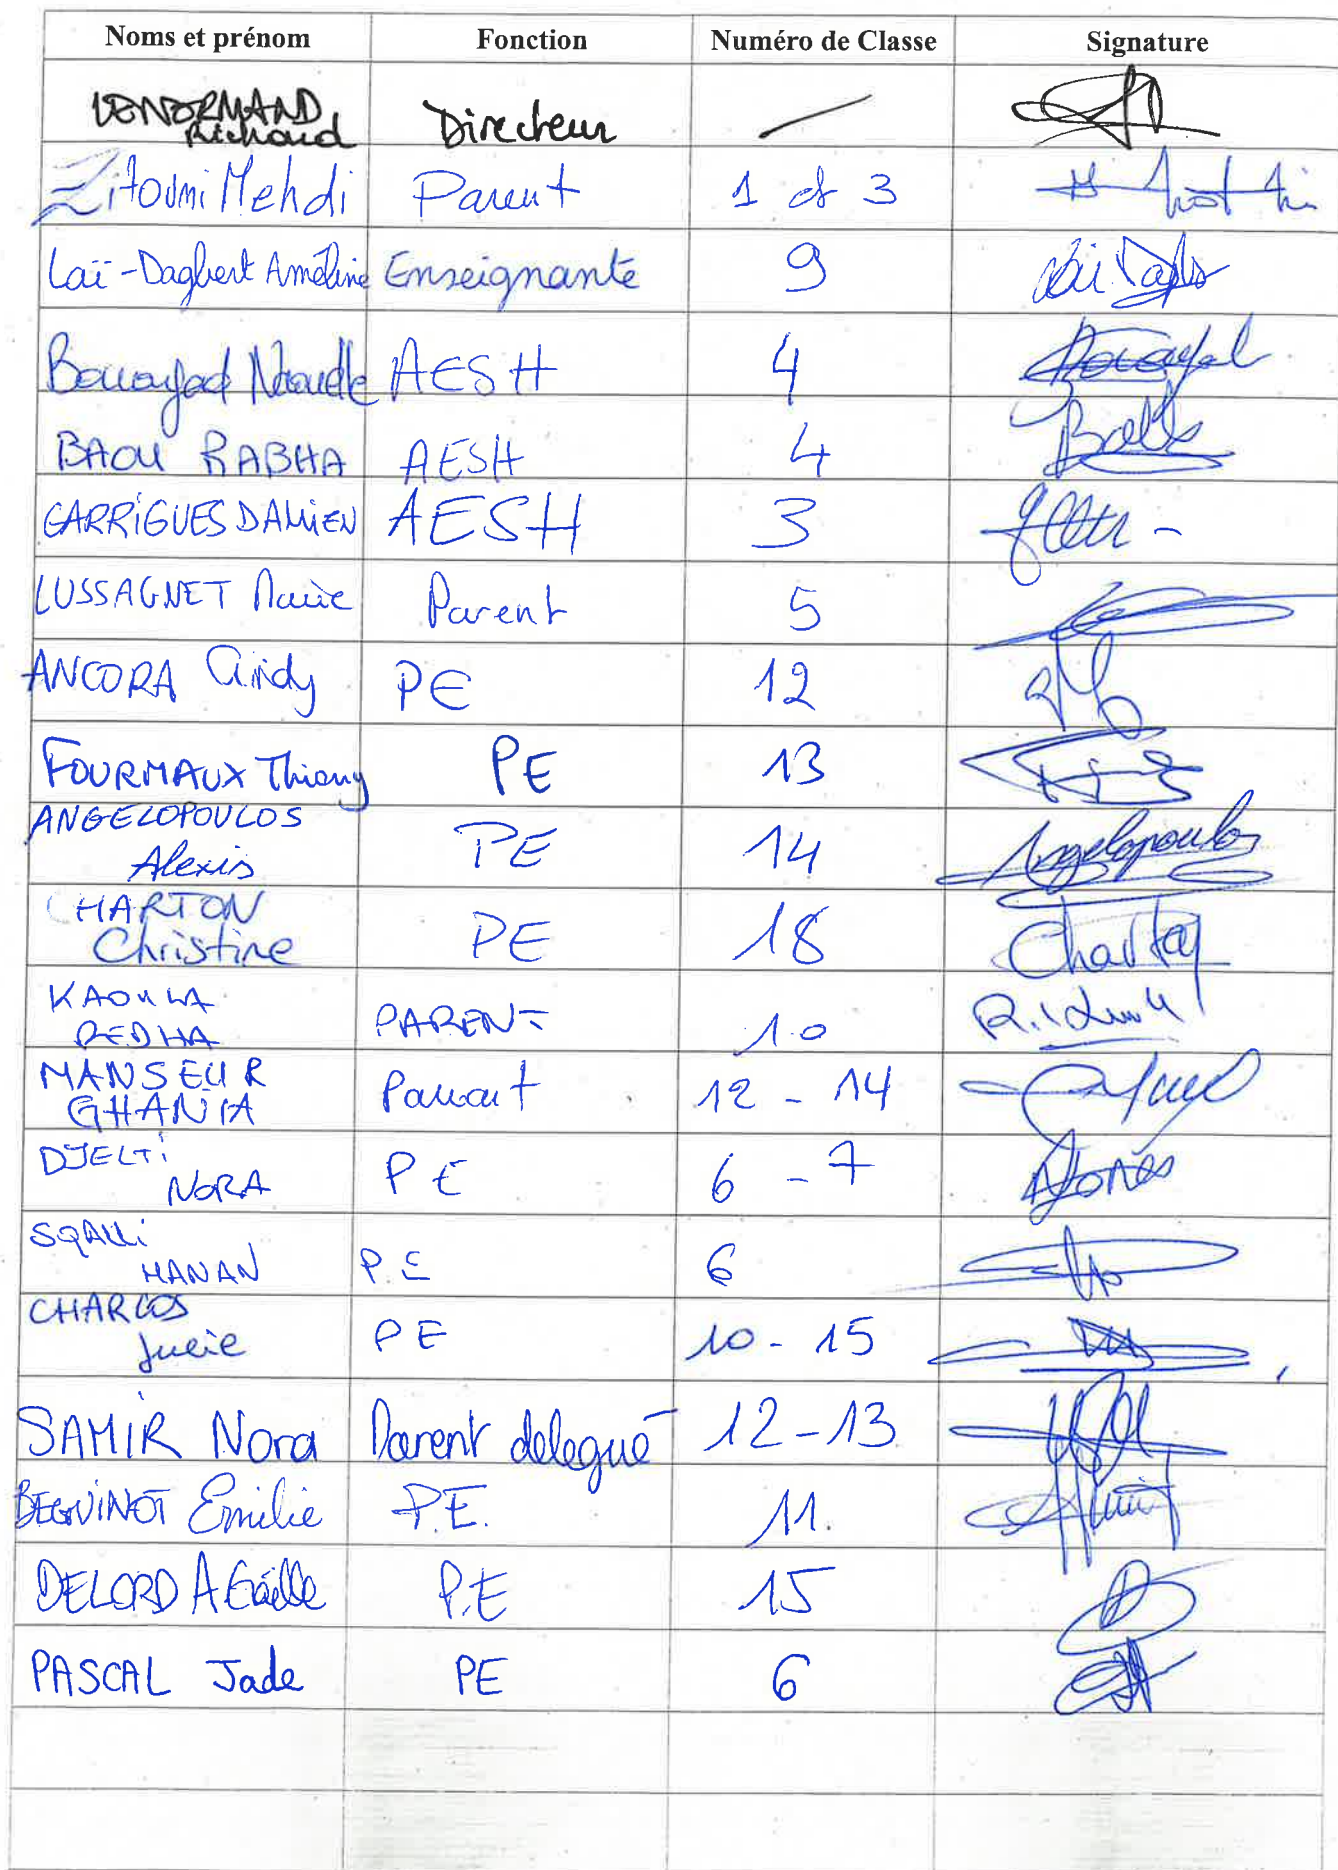 Noms et prénom Fonction Numéro de Classe Signature
LENORMAND
Richard Directeur —
Zitouni Mehdi Parent 1 et 3
Laï-Dagbert Améline Enseignante 9
Bouayad Naouelle AESH 4
BAOU RABHA AESH 4
GARRIGUES DAMIEN AESH 3
LUSSAGNET Marie Parent 5
ANCORA Cindy PE 12
FOURMAUX Thierry PE 13
ANGELOPOULOS
Alexis PE 14 Angelopoulos
CHARTON
Christine PE 18 Charton
KAOULA
REDHA PARENT 10
MANSEUR
GHANIA Parent 12 - 14
DJELTi
NORA PE 6 - 7
SQALLi
HANAN P.E 6
CHARLOS
Julie PE 10 - 15
SAMIR Nora Parent delegué 12-13
BEGUINOT Emilie P.E. 11.
DELORD Agaëlle P.E 15
PASCAL Jade PE 6